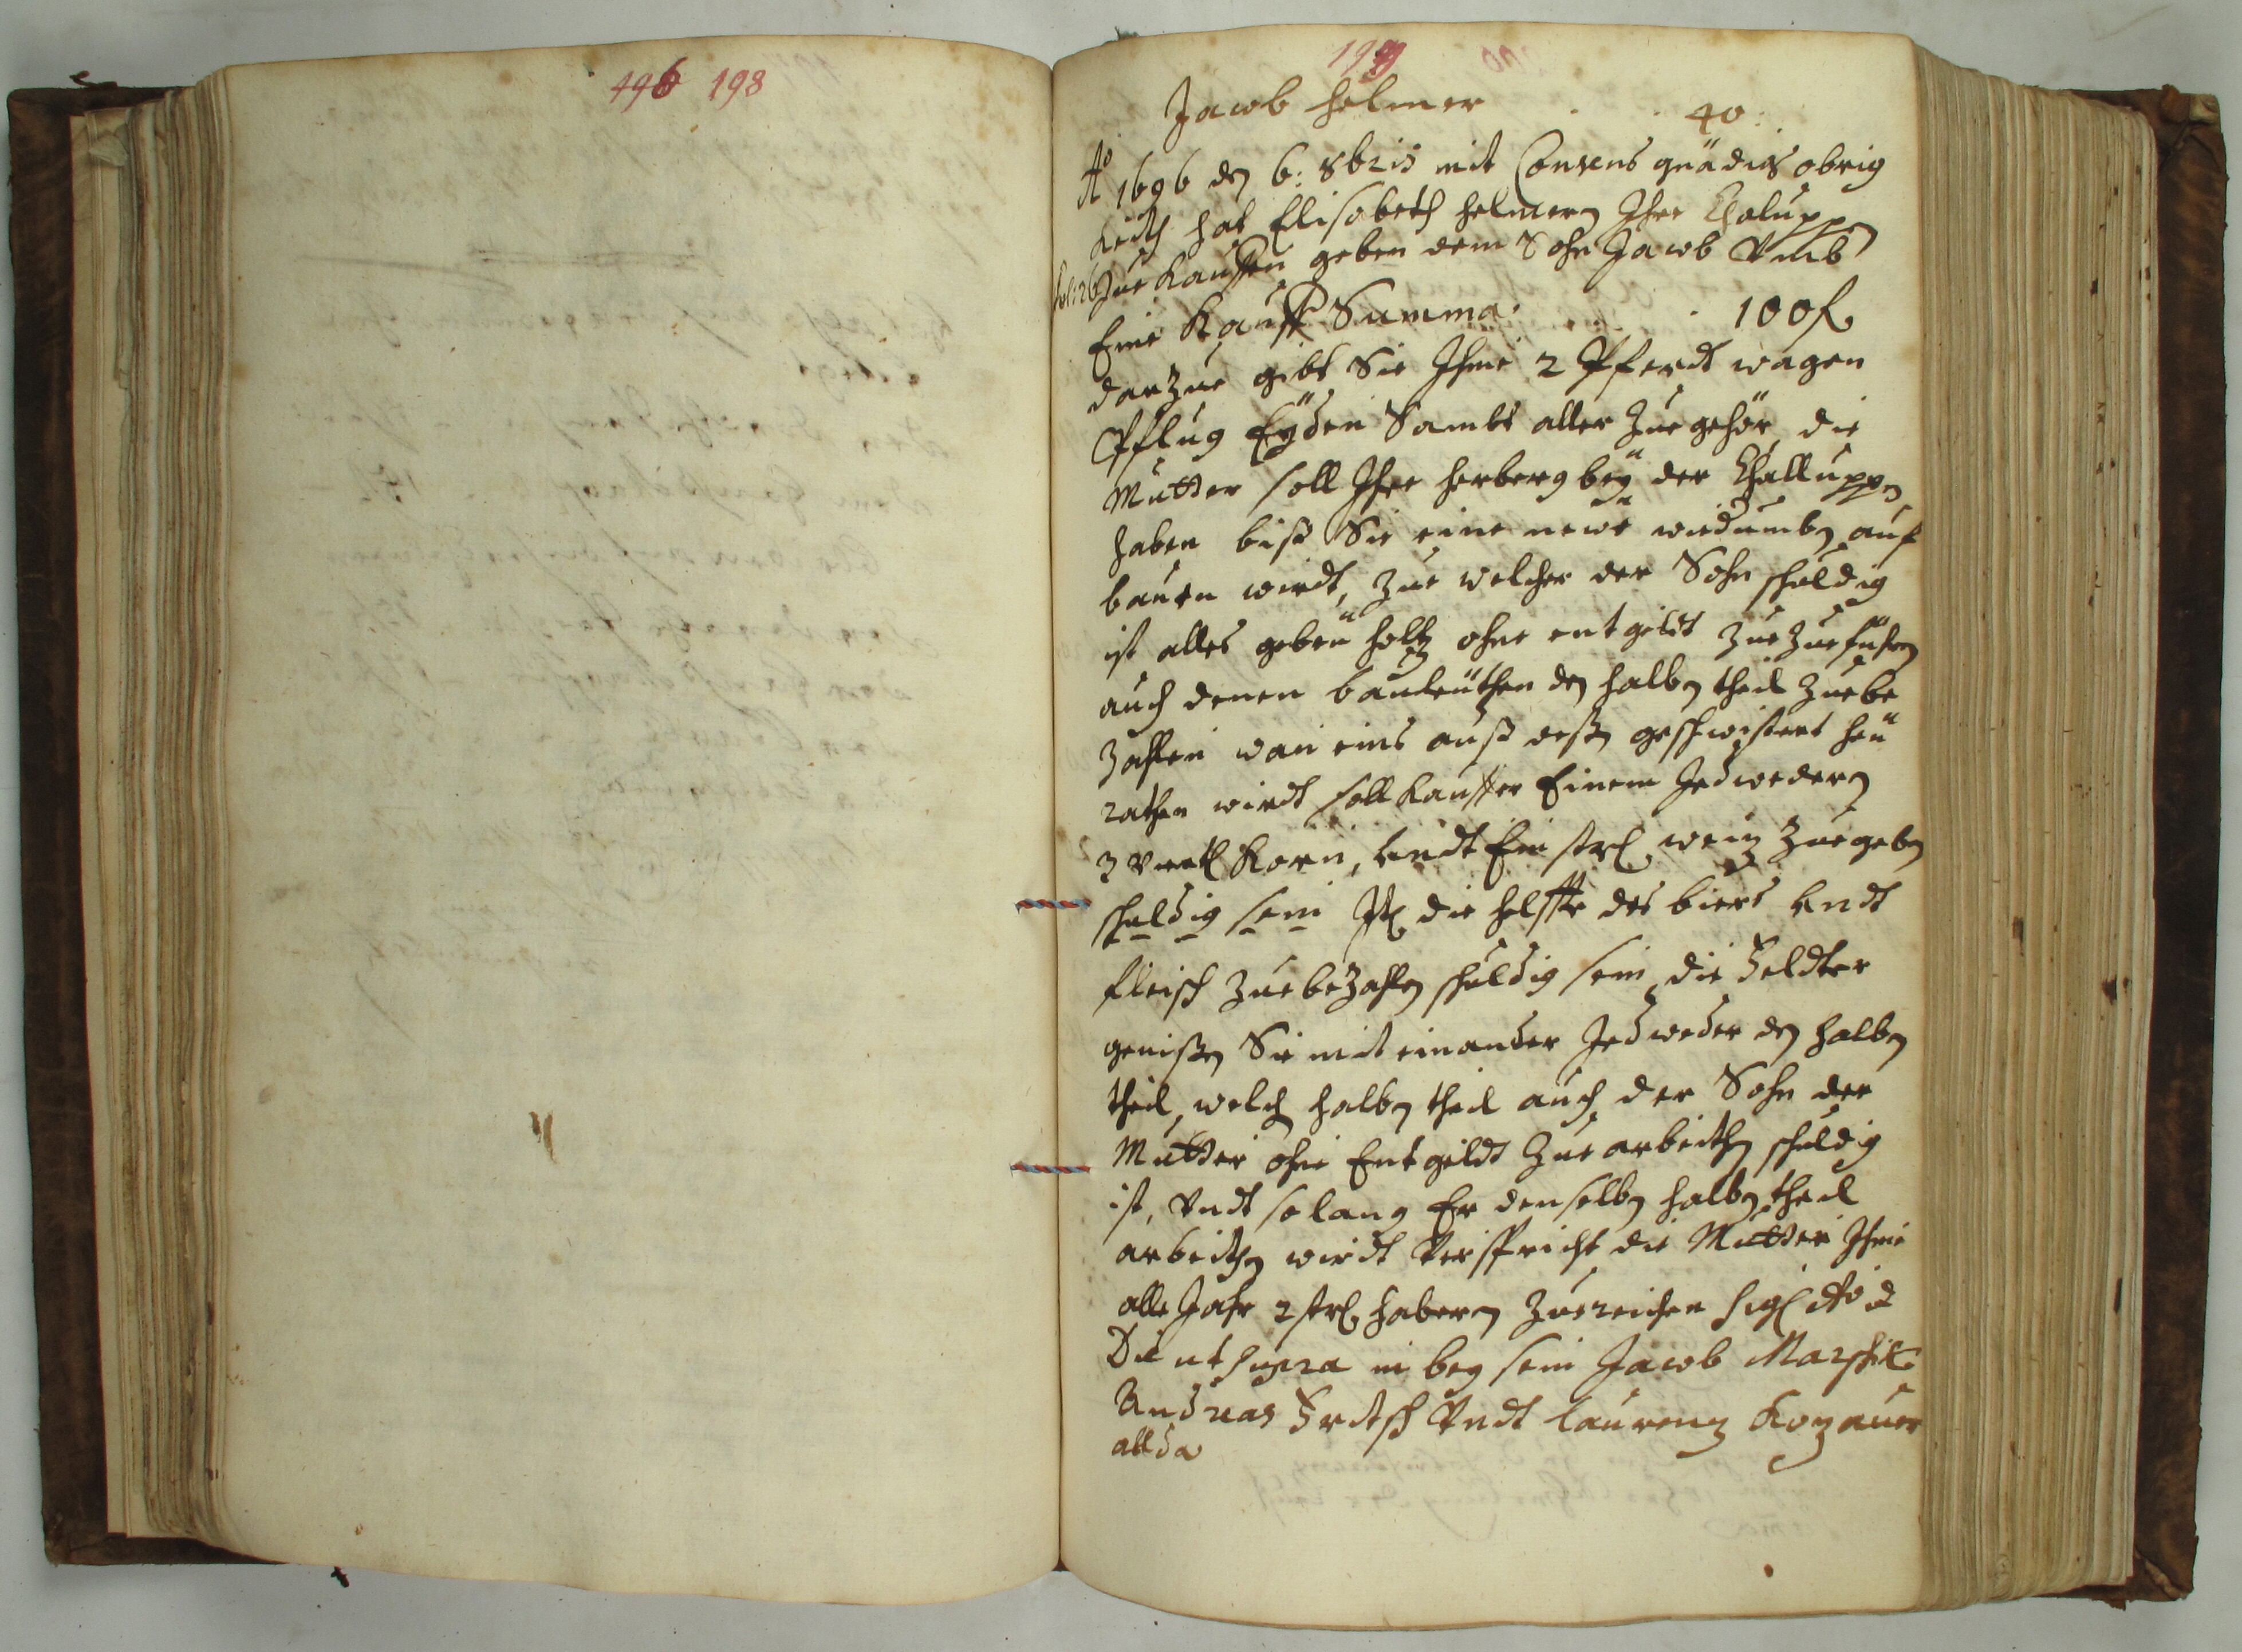 496 198
199
Jacob Helmer 40
Aō 1696 den 6: 8bris mit Consens gnädigs obrig
keith hat Elisabeth Helmern Ihre Chaluppen
zue Kauffen geben dem Sohn Jacob Vmb
Eine Kauff Summa. 100 f.
darzue gibt Sie Ihme 2 Pferdt wagen
Pflug Eyden Sambt aller Zuegehör, die
Mutter soll Ihre herberg bey der Challuppen
haben biß Sie eine newe widumben auf
bauen wirdt, zue welcher der Sohn schuldig
ist alles geben holtz ohne entgeldt zuezueführen
auch denen bauleüthen den halben theil zuebe
zahlen wan eins auß deßen geschwistert heü
rathen wirdt soll kauffer Einem Jedwedern
3 Viertl Korn, undt Ein strl weitz zuegeben
schuldig sein Itl die helffte des biers undt
fleisch zuebezahlen schuldig sein, die Feldter
genißen Sie mit einander Jedweder den halben
theil, welchen halben theil auch der Sohn der
Mutter ohne Entgeldt zue arbeithen schuldig
ist, Vndt solang Er denselben halben theil
arbeithen wirdt Verspricht die Mutter Ihme
alle Jahr 2 strl habern zuereichen Sigl Aō &
Die ut supra in bey sein Jacob Marschik
Andreas Fritsch Vndt Laurentz Kozauer
allda